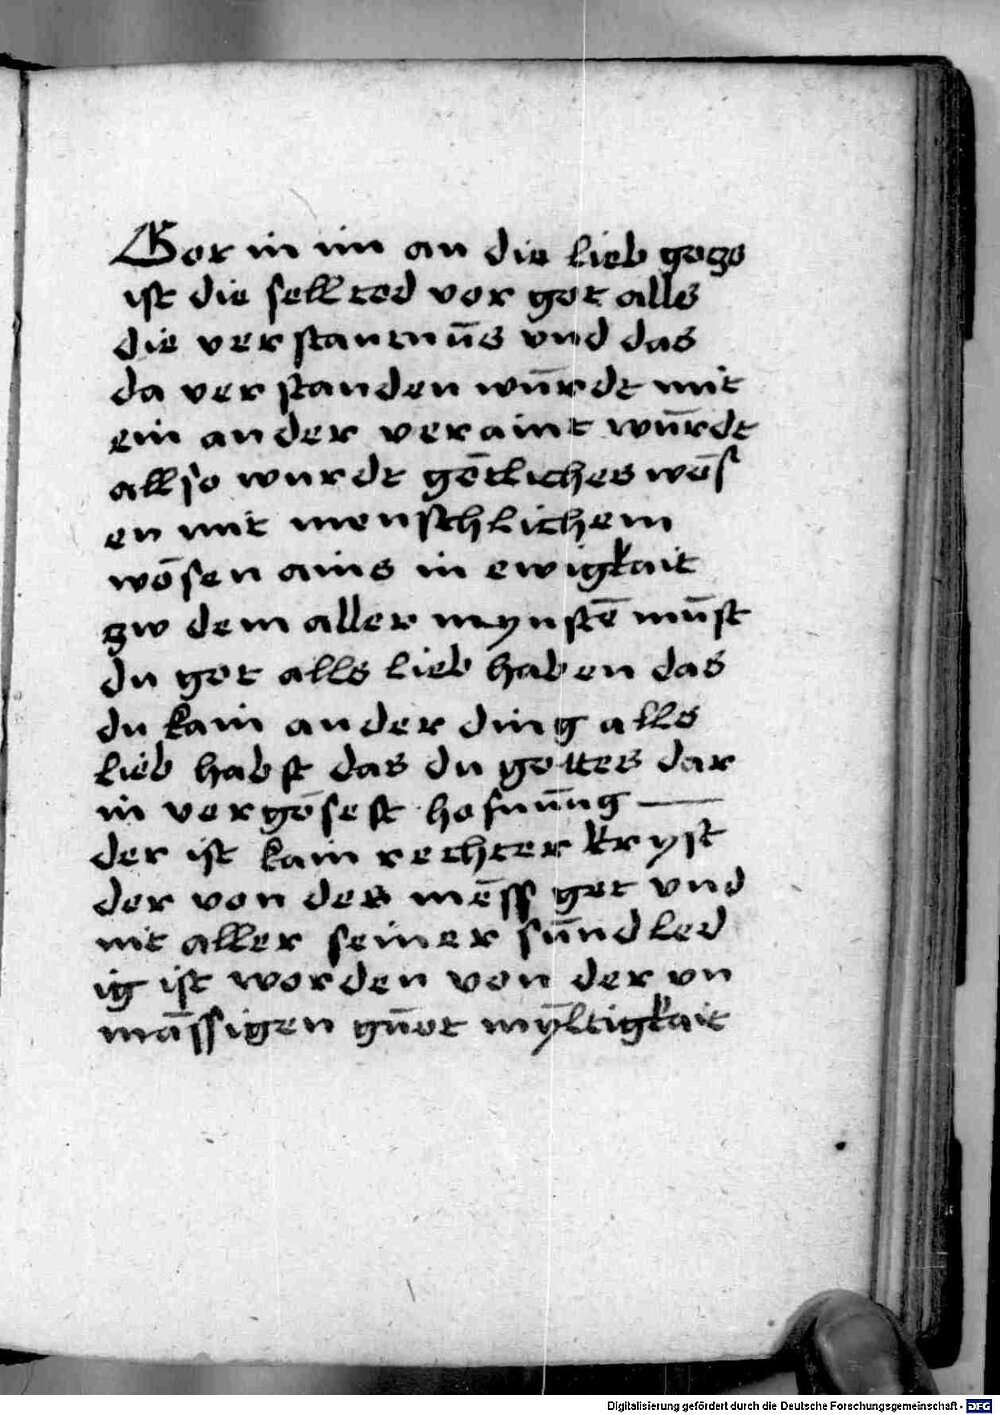 Gor in im an die lieb gogo
ist die sell tod vor got alls
die verstantnu̅s vnd das
da verstanden wu̅rde mit
ein ander veraint wu̅rde
allso wurde go̅tliches wo̅s
en mit menschlichem
wo̅sen ains in ewigkait
zw dem aller mynste̅ mu̅st
du got alls lieb haben das
du kain ander ding alls
lieb habst das du gottes dar
in vergo̅sest hofnu̅ng
der ist kain rechter kryst
der von der me̅ss get vnd
nit aller seiner su̅nd led
ig ist worden von der vn
ma̅ssigen gu̅ot my̅ltigkait
Digitalisierung gefördert durch die Deutsche Forschungsgemeinschaft - DFG